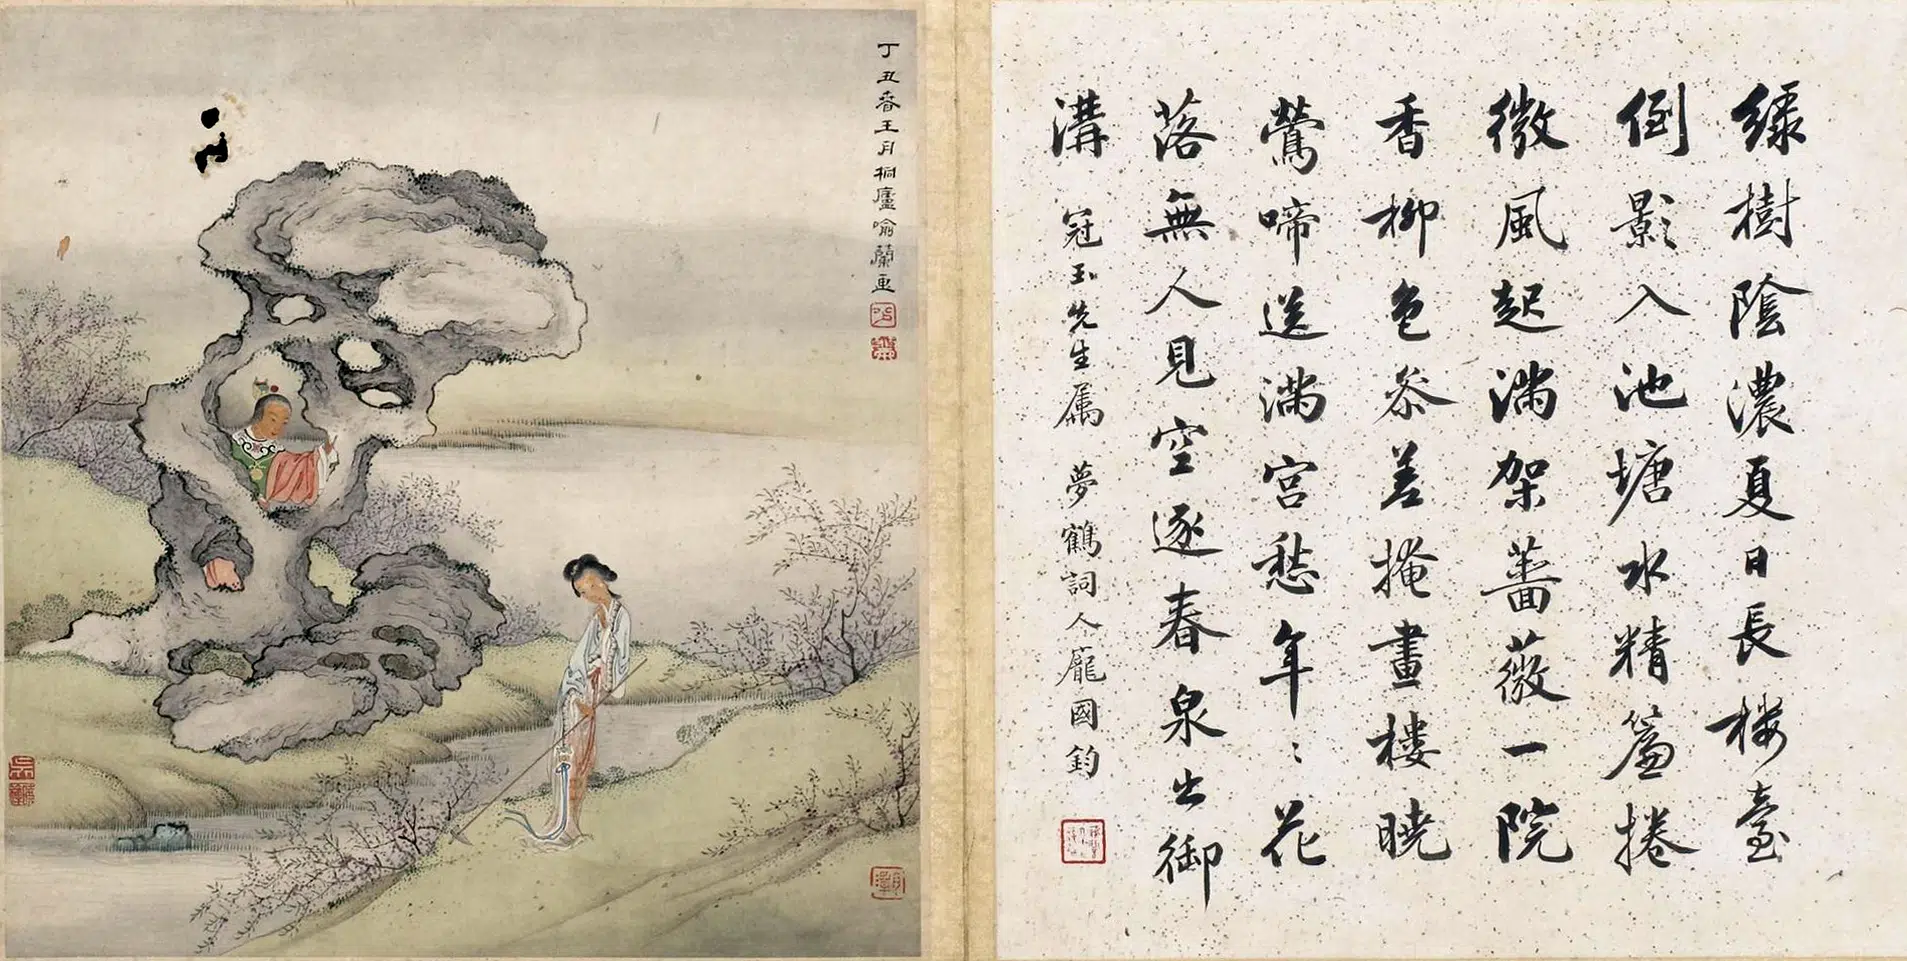 綠樹陰濃夏日長樓臺
倒影入池塘水精簾捲
微風起滿架薔薇一院
香柳色參差掩畫樓曉
鶯啼送滿宮愁年〻花
落無人見空逐春泉出御
溝 冠玉先生屬 夢鶴詞人龐國鈞
丁丑春王月桐廬喻蘭画